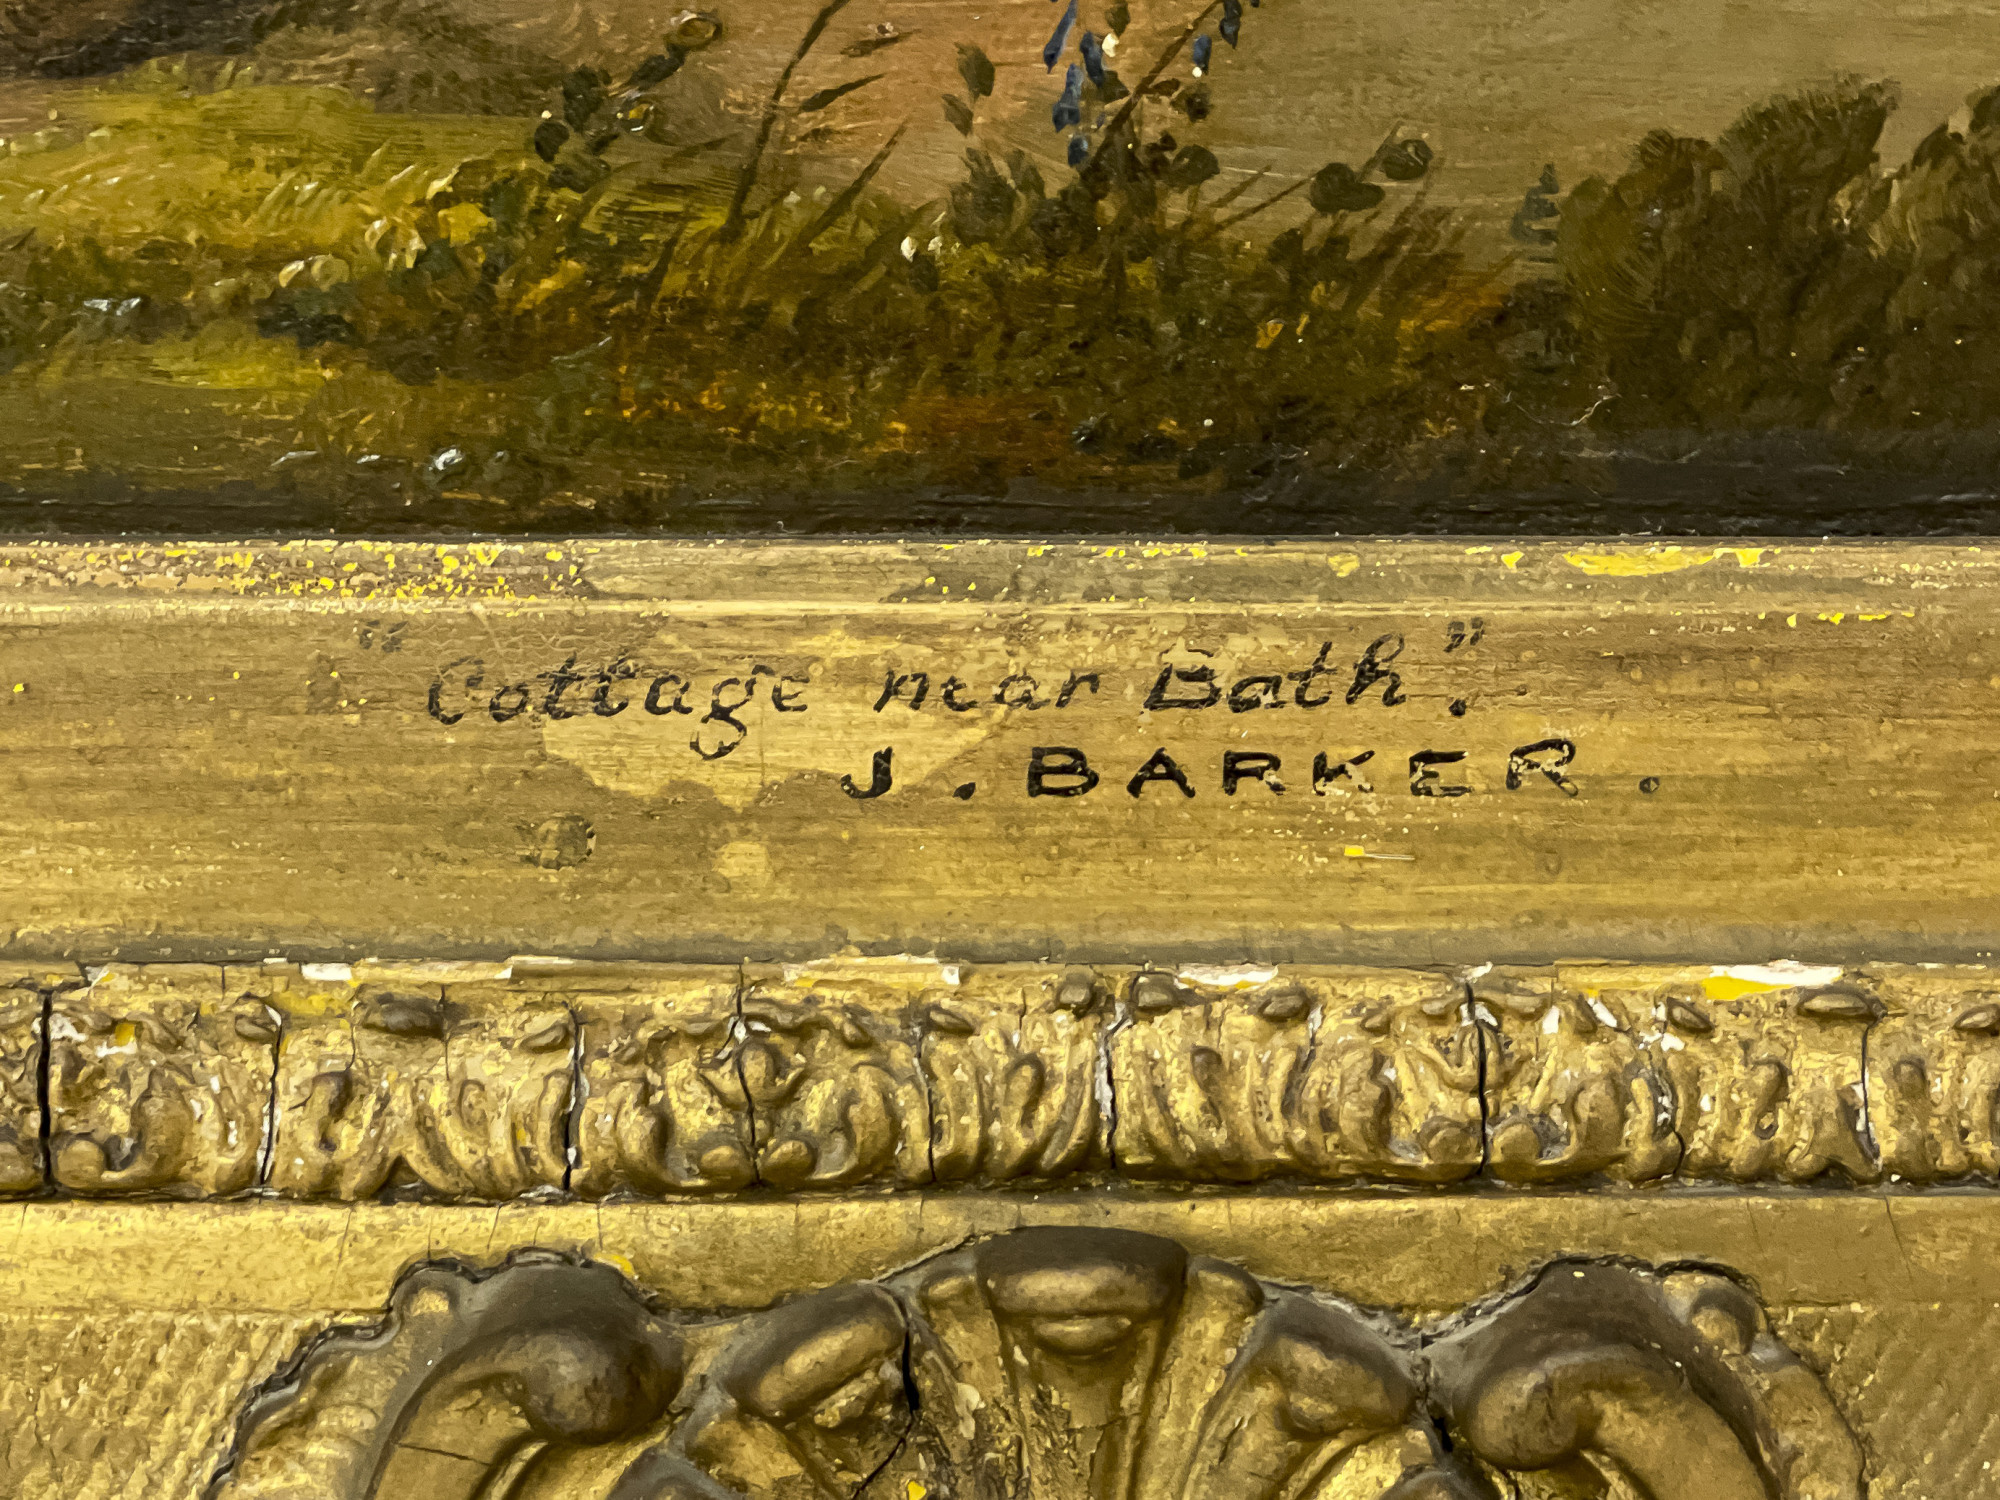 "Cottage near Bath".
J. BARKER.